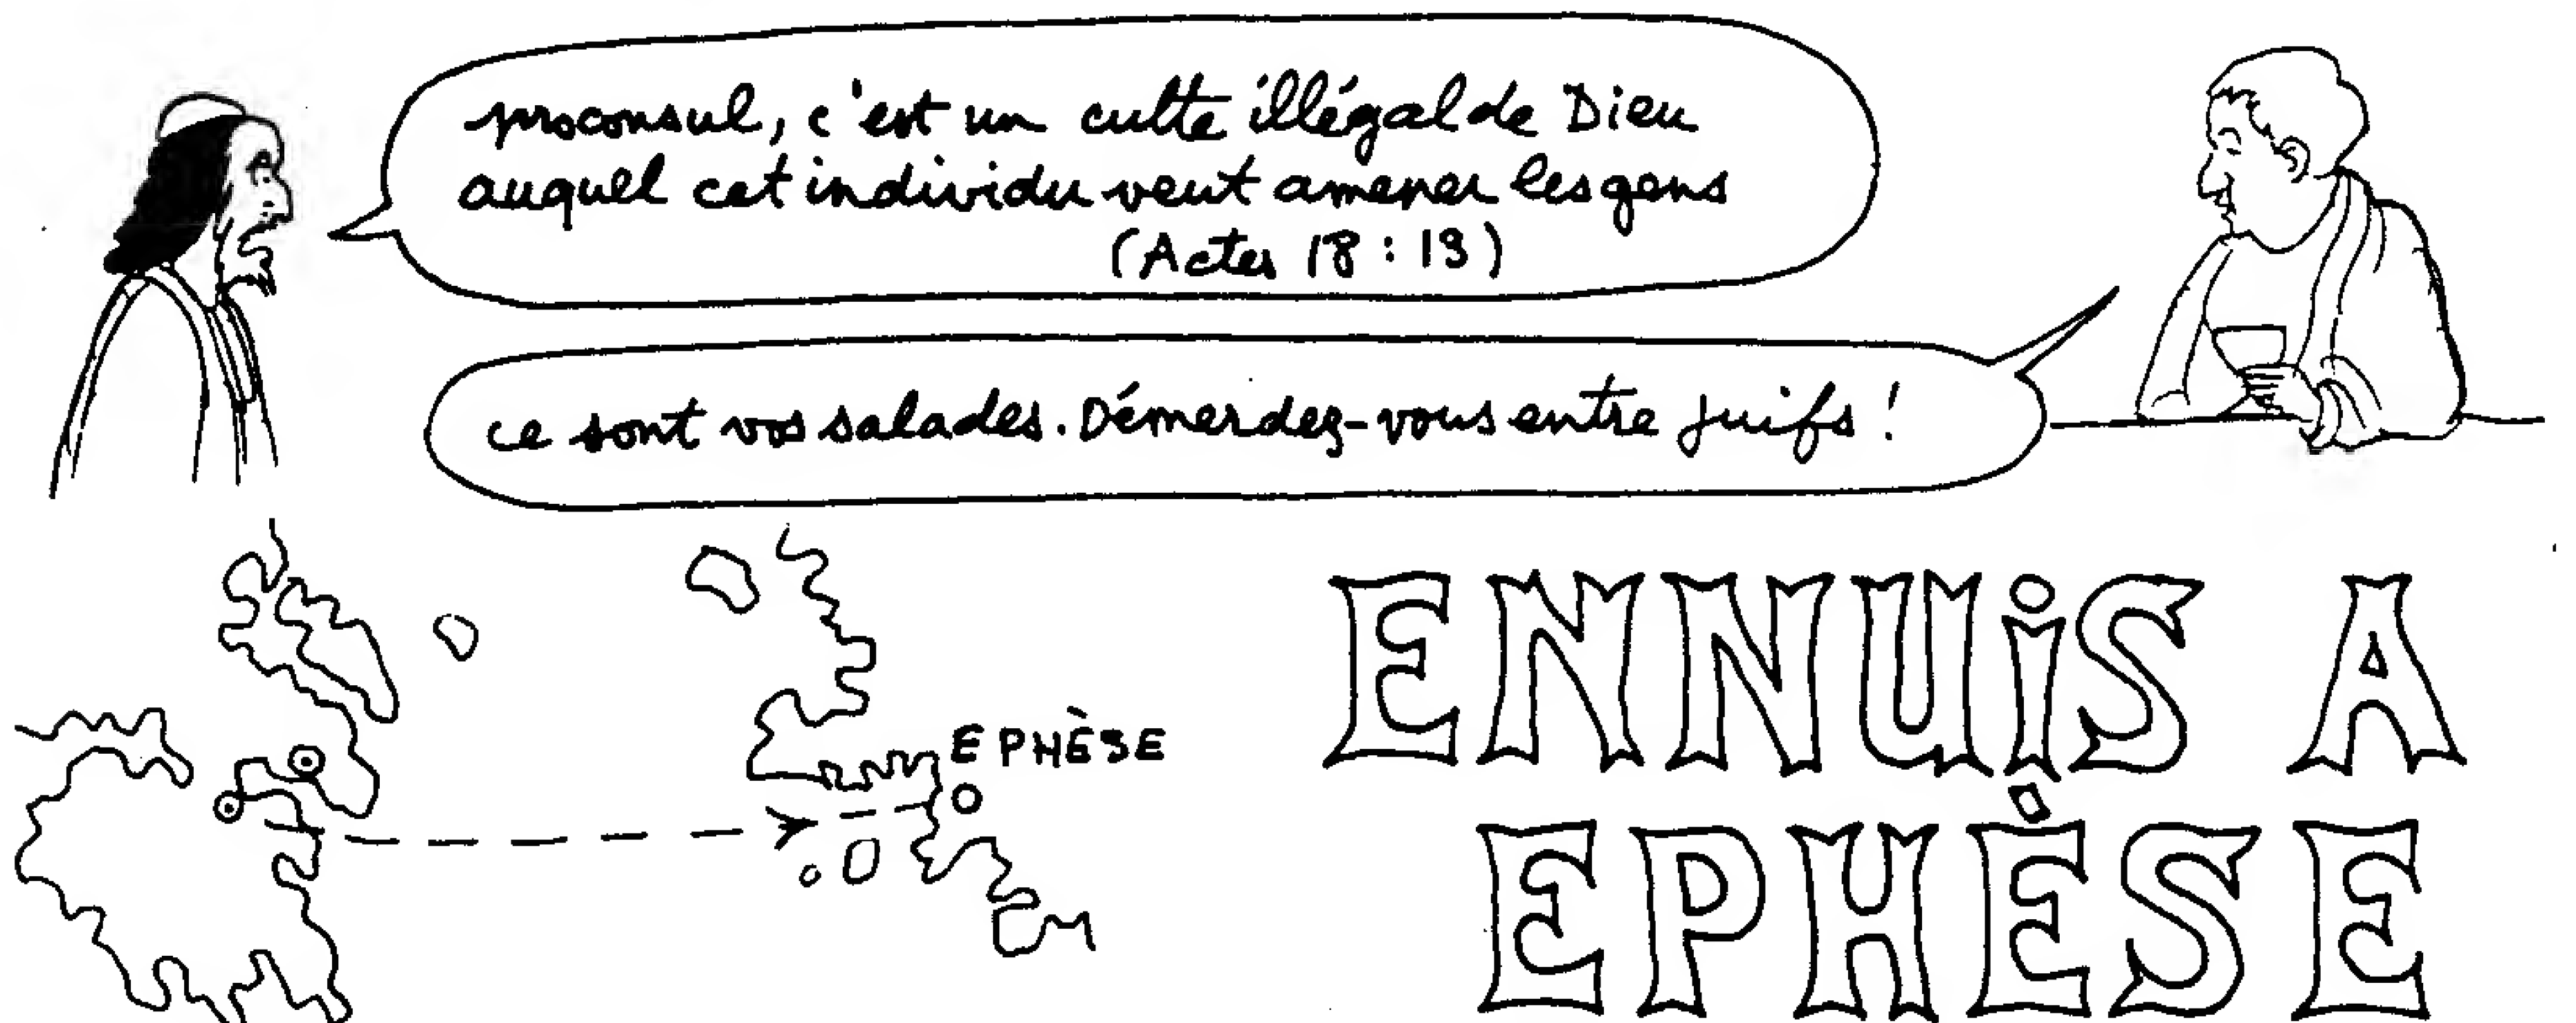 proconsul, c'est un culte illégal de Dieu
auquel cet individu veut amener les gens
(Actes 18 : 13)
ce sont vos salades. Démerdez-vous entre juifs !
EPHÈSE
ENNUiS A
EPHÈSE